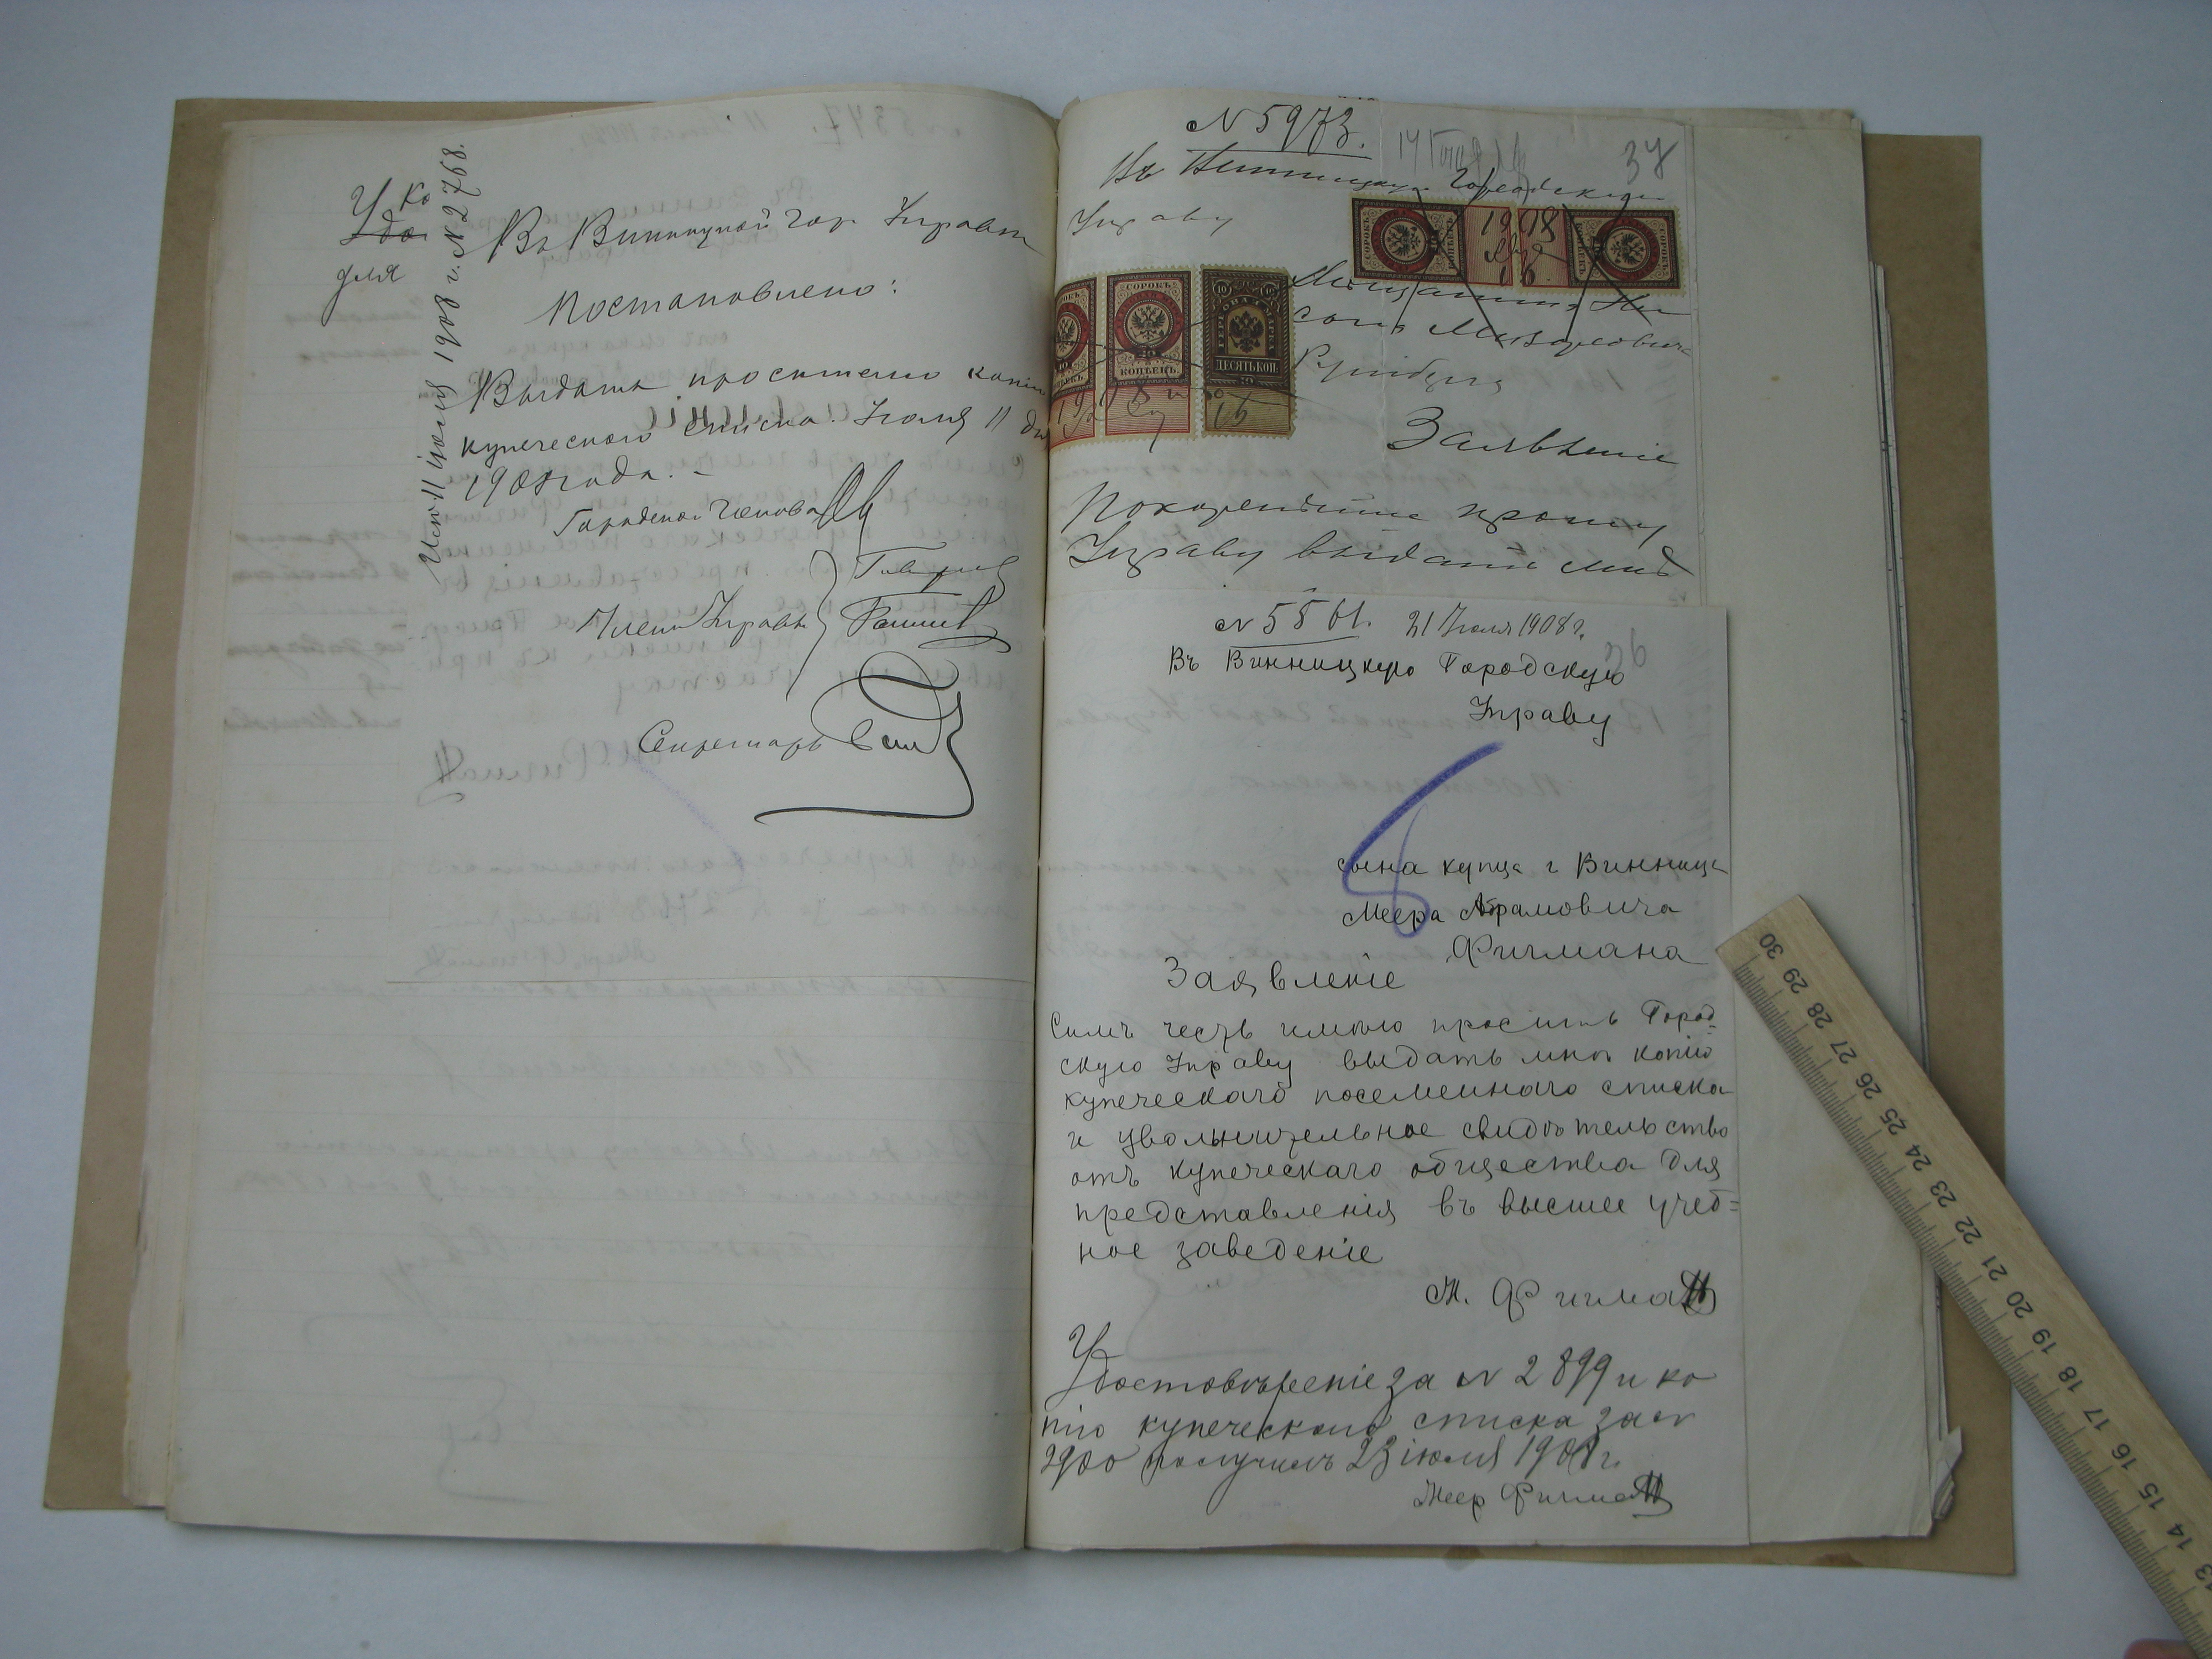 Исп. 11 іюля 1908 г. № 2768.
Въ Винницкой Гор. Управѣ
Постановлено:
Выдать просителю копію
купеческого списка. Іюля 11 дня
1908 года. –
Городской Голова
Члены Управы
Секретарь
Удо ко
для
№ 5973.
37
Въ Винницкую Городскую
Управу
1908
Авг
16
СОРОКЪ КОПѢЕКЪ
ДЕСЯТЬ КОП.
10
Мѣщанина
Заявленіе
Покорнѣйше прошу
Управу выдать мнѣ
№ 5561. 21 Іюля 1908 г.
36
Въ Винницкую Городскую
Управу
сына купца г Винницы
Меера Абрамовича
Фичмана
Заявленіе
Симъ честь имѣю просить Город-
скую Управу выдать мнѣ копію
купеческаго посемейнаго списка
и увольнительное свидѣтельство
отъ купеческаго общества для
представленія въ высшее учеб=
ное заведеніе
М. Фичман
Удостовѣреніе за № 2899 и ко
пію купеческого списка за №
2900 получилъ 23 іюля 1908 г.
Меер Фичман
30 29 28 27 26 25 24 23 22 21 20 19 18 17 16 15 14 13